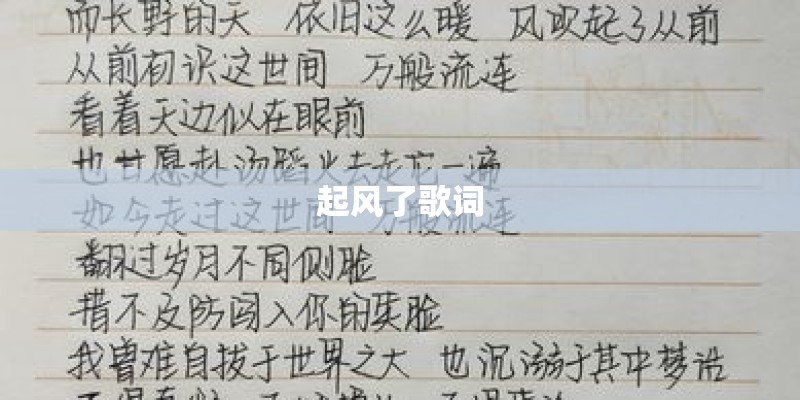 而长野的天 依旧这么暖 风吹起了从前
从前初识这世间 万般流连
看着天边似在眼前
也甘愿赴汤蹈火去走它一遍
起风了歌词
如今走过这世间 万般流连
翻过岁月不同侧脸
措不及防闯入你的笑脸
我曾难自拔于世界之大 也沉溺于其中梦话